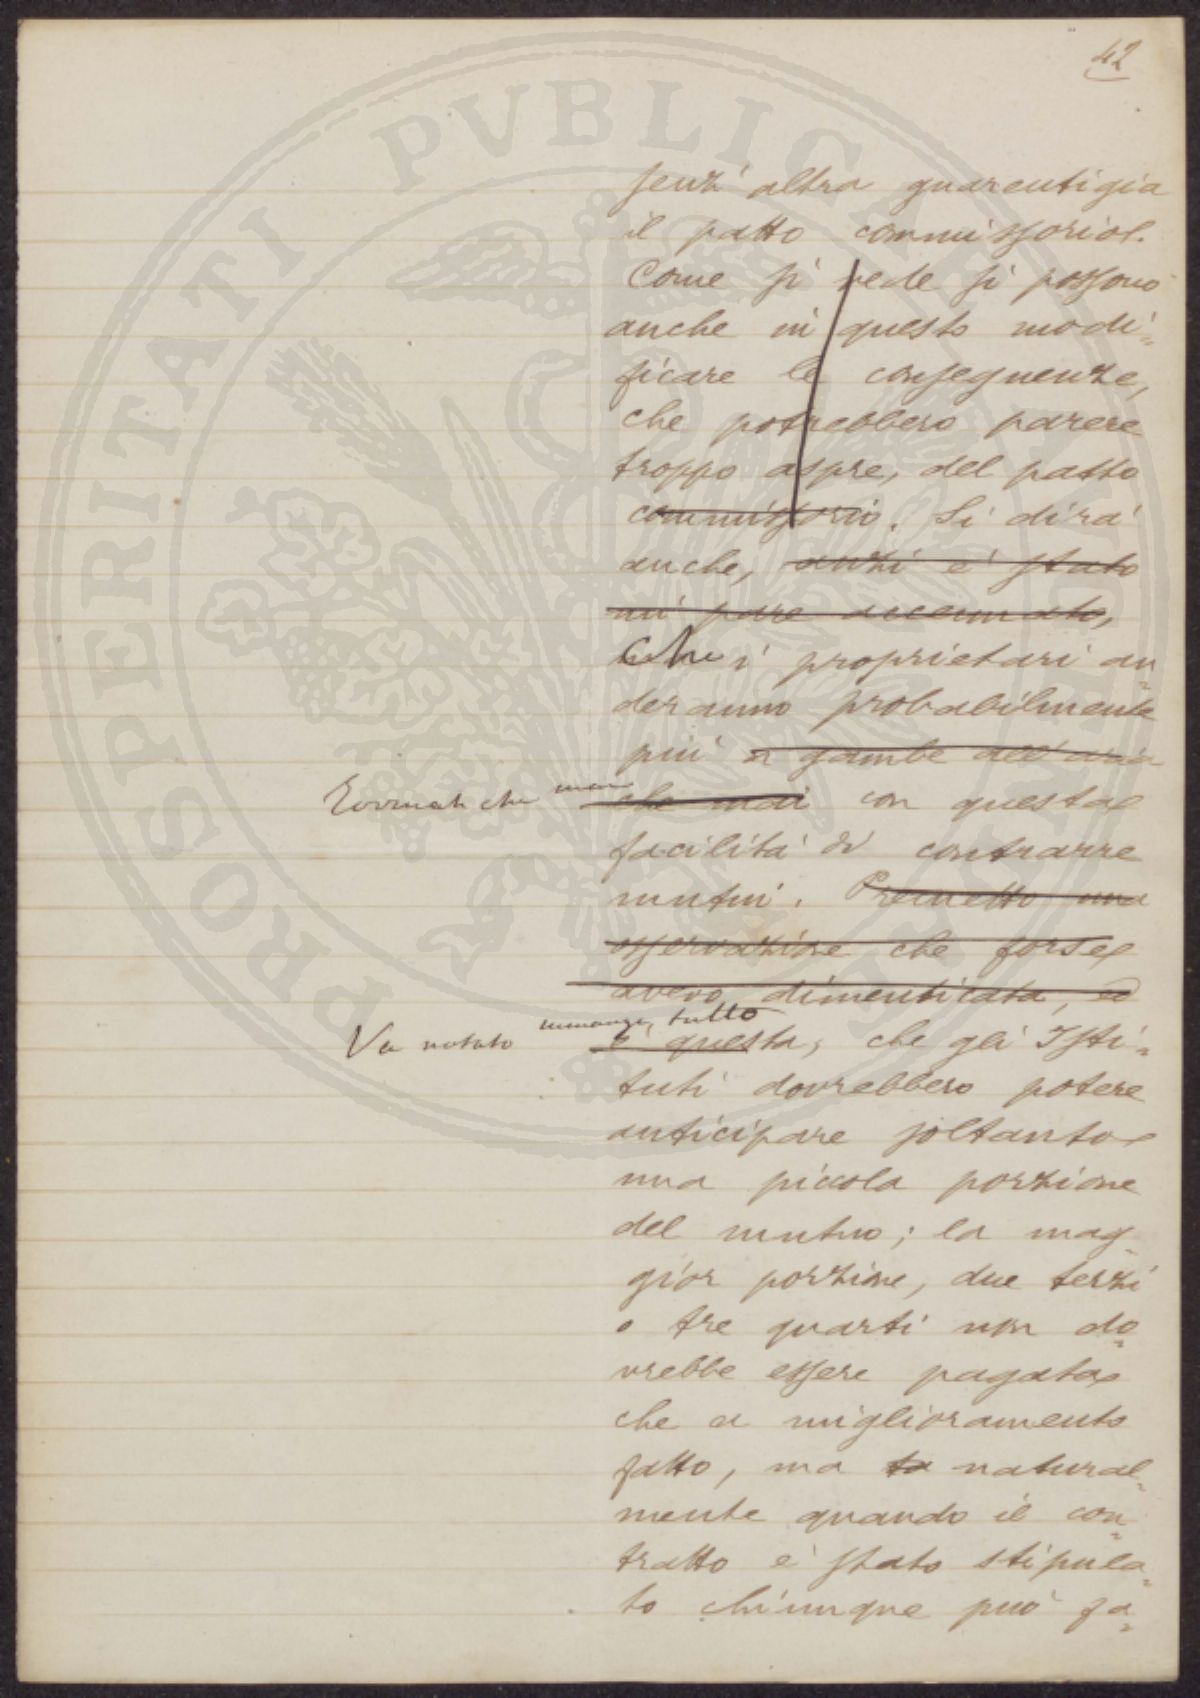 42
senz'altra guarentigia
il patto commissorio.
Come si vede si possono
anche in questo modi=
ficare le conseguenze,
che potrebbero parere
troppo aspre, del patto
commissorio. Si dirà
anche, anzi è stato
mi pare accennato,
che i proprietari an=
deranno probabilmente
più a gambe all'aria
Rovinati che mai che mai con questa
facilità di contrarre
mutui. Premetto una
osservazione che forse
avevo dimenticata, ed
Va notato innanzi tutto è questa, che gli Isti=
tuti dovrebbero potere
anticipare soltanto
una piccola porzione
del mutuo; la mag=
gior porzione, due terzi
o tre quarti non do=
vrebbe essere pagata
che a miglioramento
fatto, ma natural=
mente quando il con=
tratto è stato stipula=
to chiunque può fa=
PROSPERITATI PVBLICAE